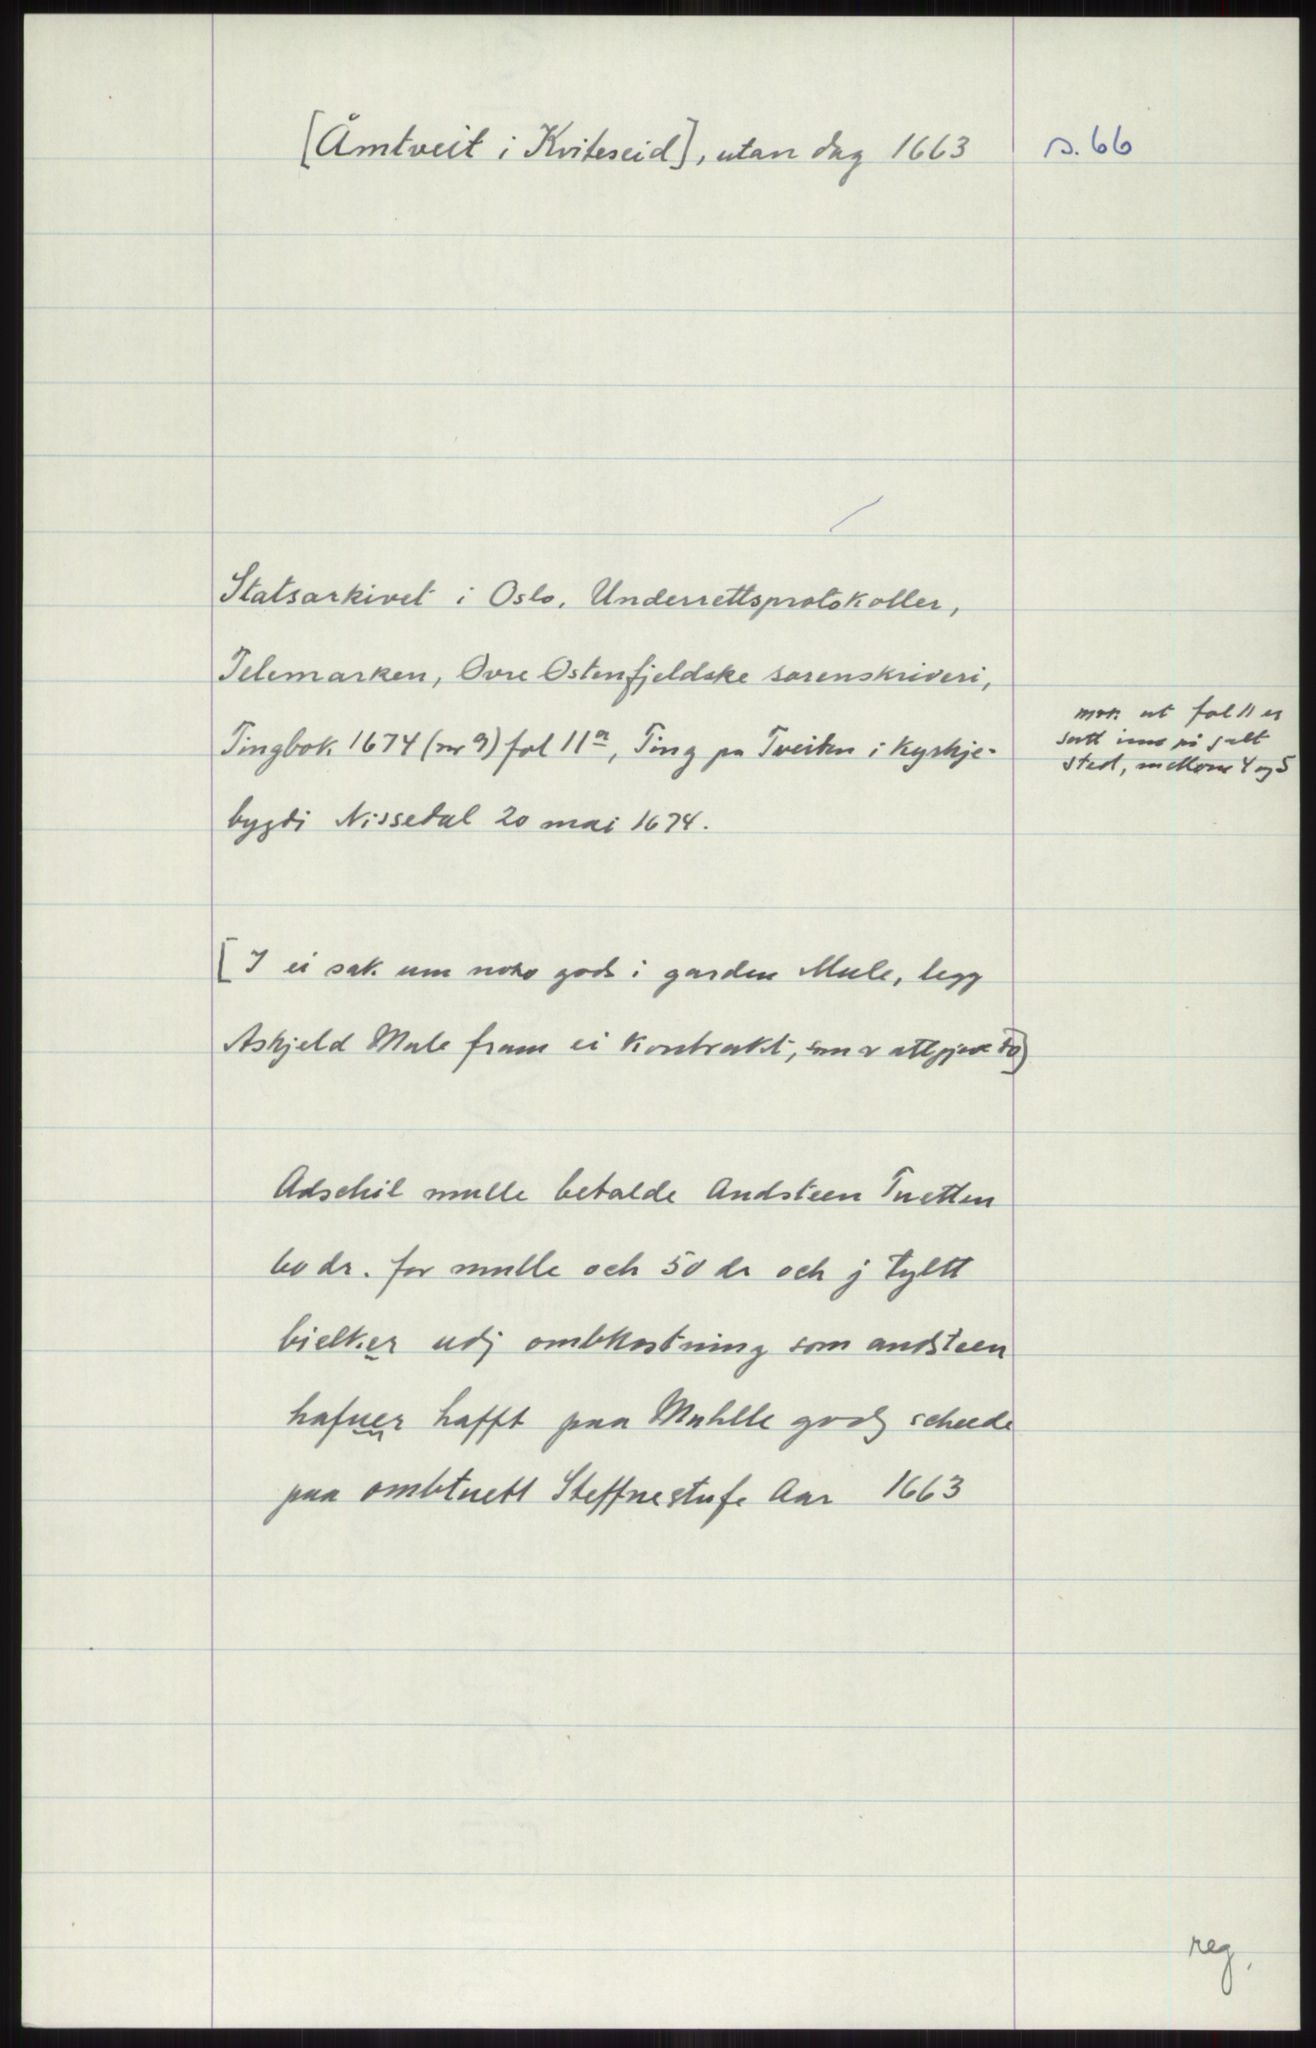 [Åmtveit i Kviteseid], utan dag 1663
s. 66
Statsarkivet i Oslo. Underrettsprotokoller,
Telemarken, Øvre Østenfjeldske sorenskriveri,
Tingbok 1674 (nr 9) fol 11a, Ting pa Tveiten i Kyrkje-
bygdi Nissedal 20 mai 1674.
mrk at fol 11 er
sett inn på galt
sted, mellom 4 og 5
[I ei sak um noko gods i garden Mule, legg
Askjeld Mule fram ei kontrakt, som
Adschil mulle betalde Andsteen Tuetten
60 dr. for mulle och 50 dr och j tyltt
bielker udj ombkostning som andsteen
hafuer hafft paa Muhlle godz scheede
paa ombtuett Steffnestufe Aar 1663
reg.